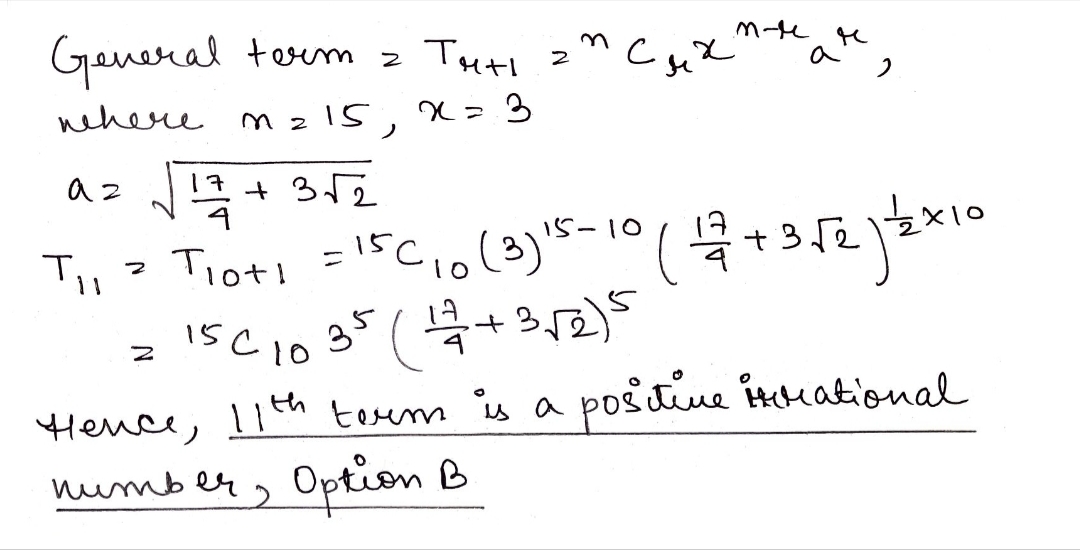 General term = T_{r+1} = ^nC_r x^{n-r} a^r,
where n = 15, x = 3
a = √(17/4 + 3√2)
T_{11} = T_{10+1} = ^{15}C_{10} (3)^{15-10} (17/4 + 3√2)^{1/2 × 10}
= ^{15}C_{10} 3^5 (17/4 + 3√2)^5
Hence, 11th term is a positive irrational
number, Option B